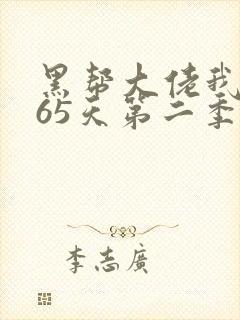 黑帮大佬我
65天第二季
李志廣